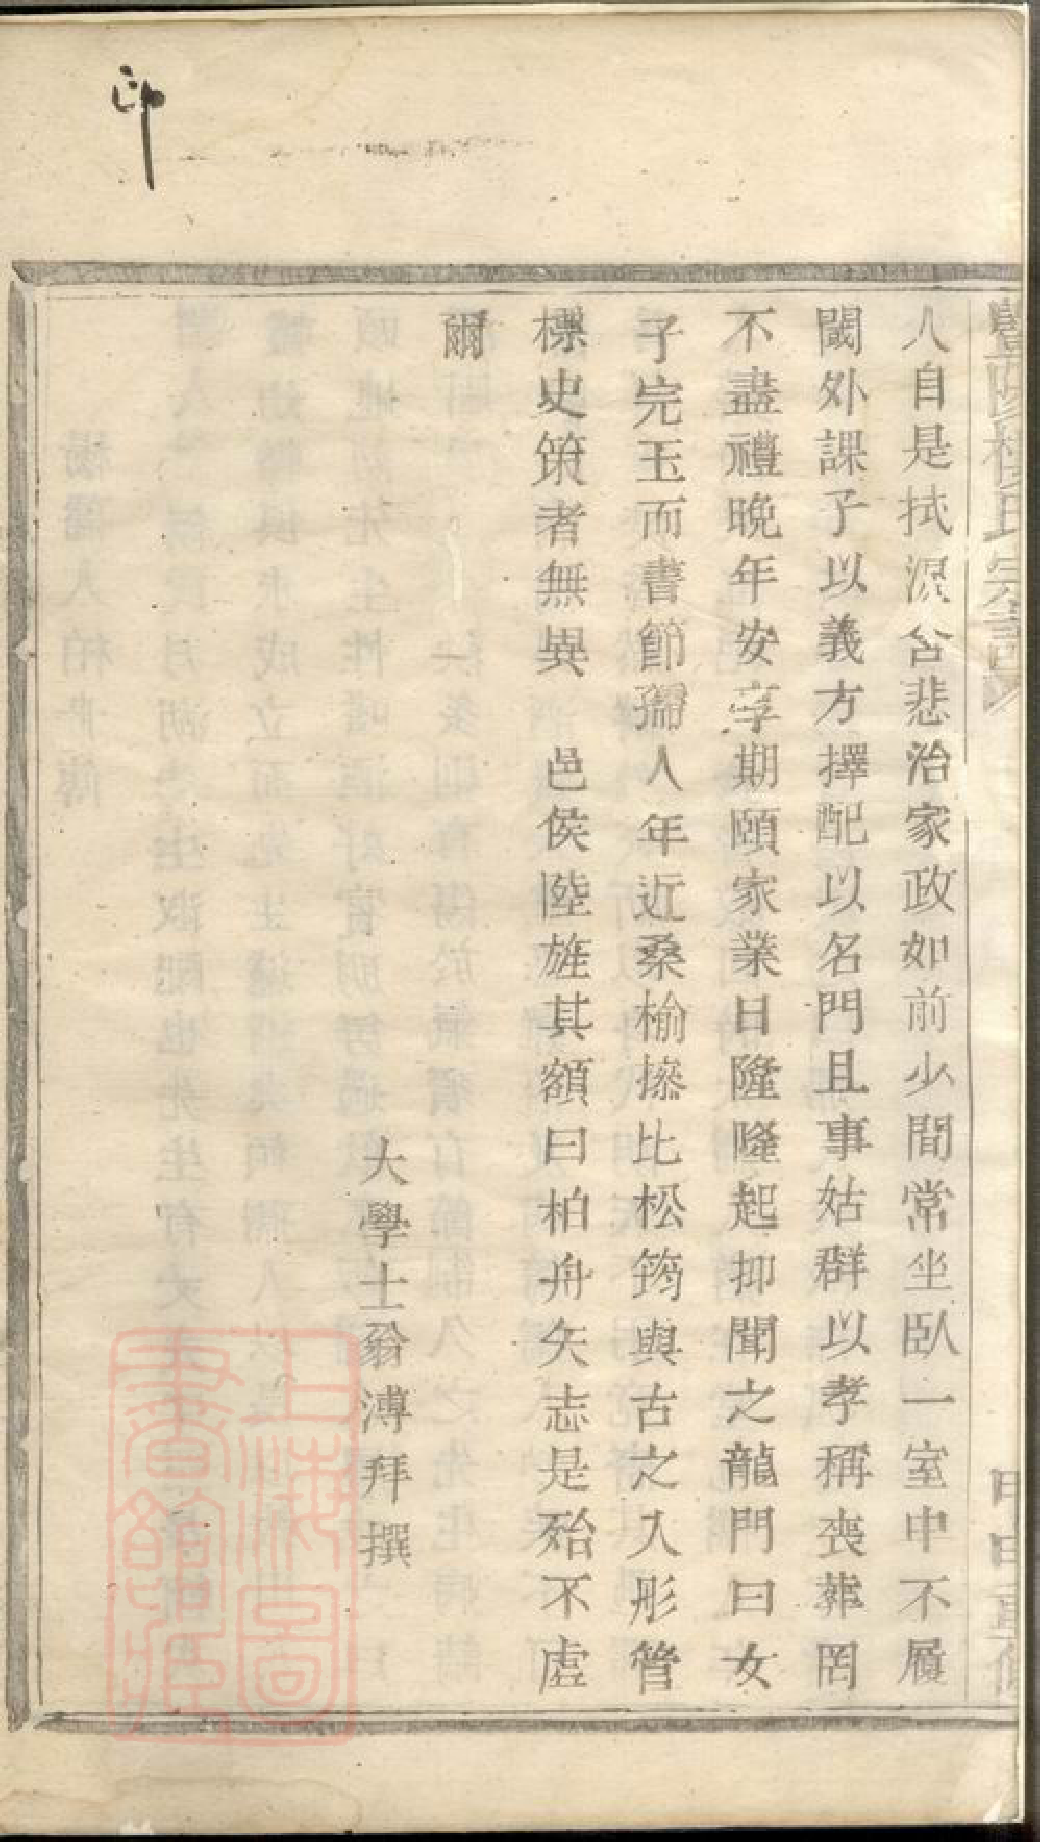 人自是拭淚含悲治家政如前少間常坐臥一室中不履
閾外課子以義方擇配以名門且事姑群以孝稱喪葬罔
不盡禮晚年安享期頤家業日隆隆起抑聞之龍門曰女
子完玉而書節孺人年近桑榆操比松筠與古之人彤管
標史策者無異　邑侯陸旌其額曰柏舟矢志是殆不虛
爾
大學士翁溥拜撰
印
上海圖
書館藏